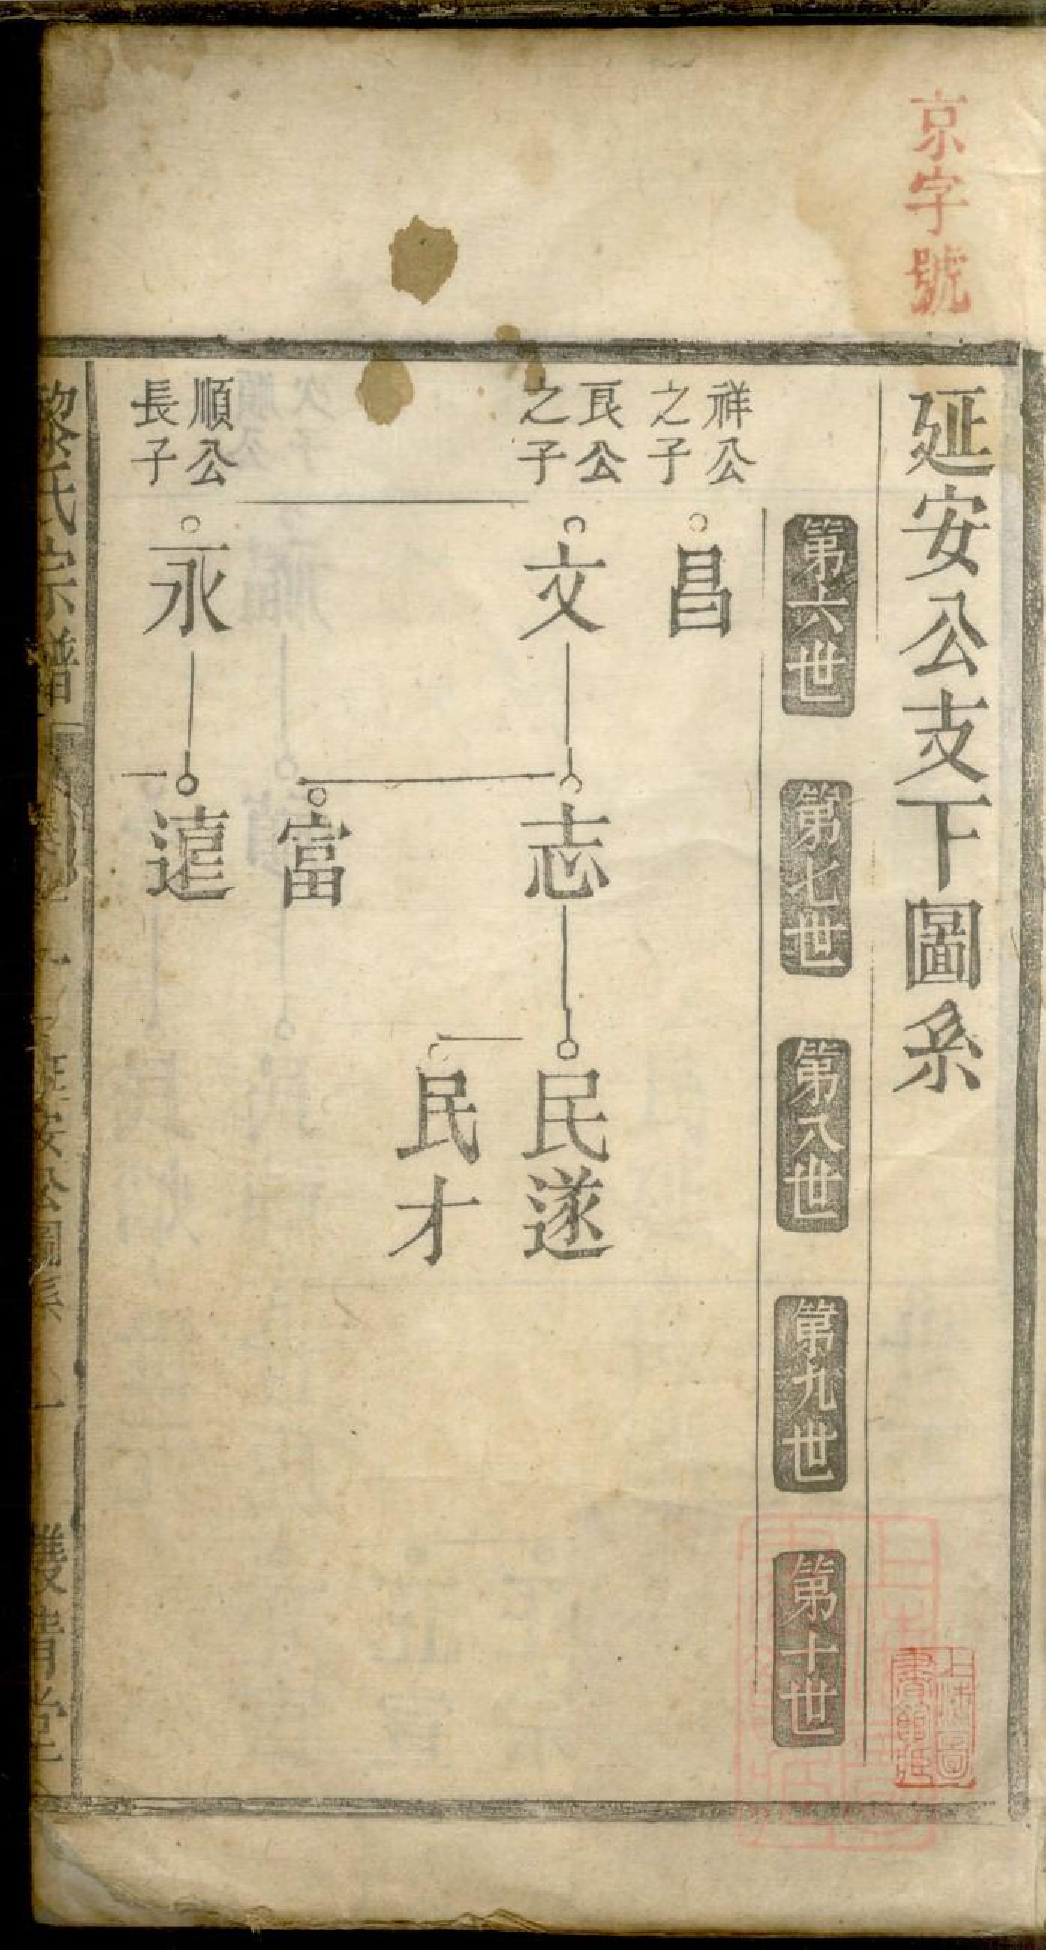 京字號
延安公支下圖系
第六世
第七世
第八世
第九世
第十世
祥公
之子
昌
良公
之子
文
志
民遂
民才
富
順公
長子
永
遠
黎氏宗譜
延安公圖系
雙清堂
上海圖
書館藏